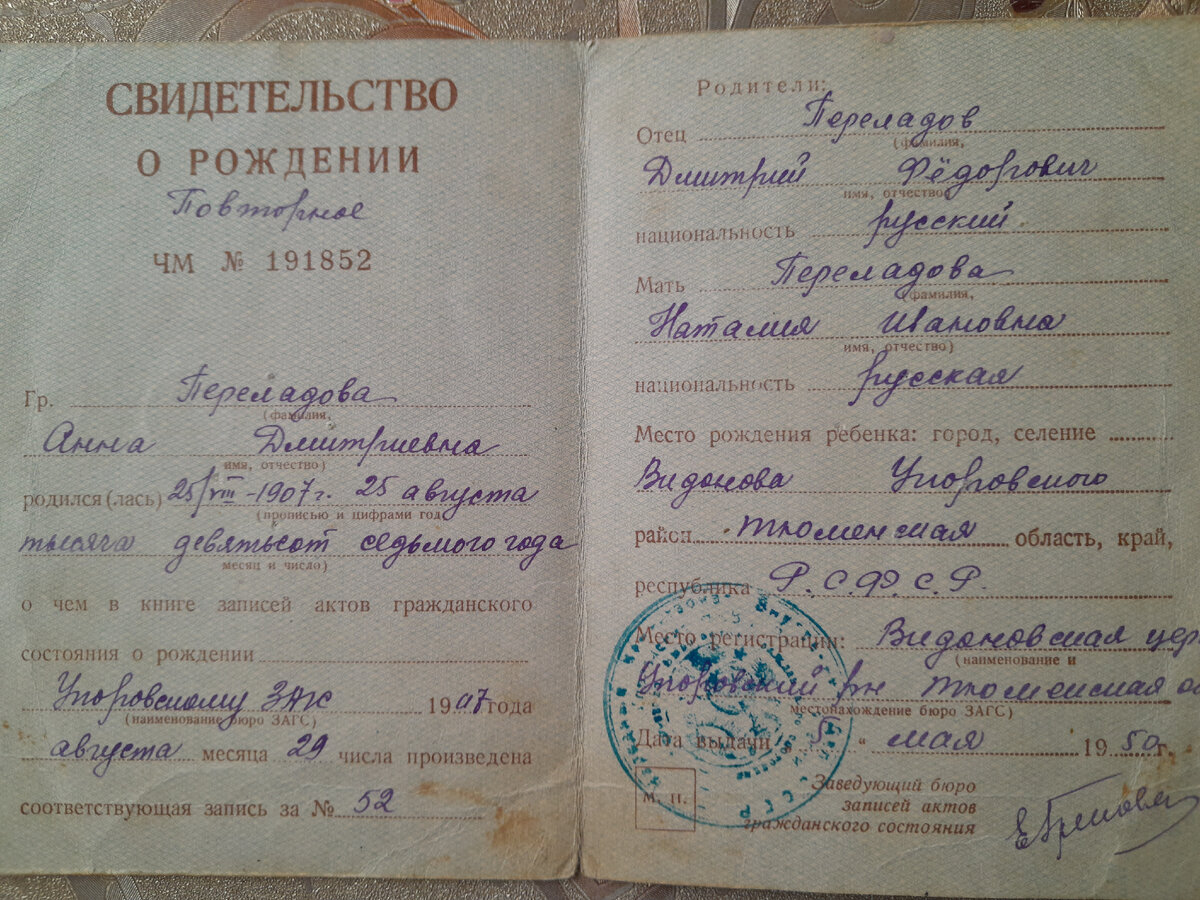 СВИДЕТЕЛЬСТВО
О РОЖДЕНИИ
Повторное
ЧМ № 191852
Гр. Переладова
(фамилия,
Анна Дмитриевна
имя, отчество)
родился(лась) 25/VIII-1907г. 25 августа
(прописью и цифрами год,
тысяча девятьсот седьмого года
месяц и число)
о чем в книге записей актов гражданского
состояния о рождении
Упоровскому ЗАГС 1907 года
(наименование бюро ЗАГС)
августа месяца 29 числа произведена
соответствующая запись за № 52
Родители:
Отец Переладов
(фамилия,
Дмитрий Фёдорович
имя, отчество)
национальность русский
Мать Переладова
(фамилия,
Наталия Ивановна
имя, отчество)
национальность русская
Место рождения ребенка: город, селение
Видонова Упоровского
район Тюменская область, край,
республика Р.С.Ф.С.Р.
Место регистрации: Видоновская цер
(наименование и
Упоровский рн Тюменская о
местонахождение бюро ЗАГС)
Дата выдачи 5 " мая 1950 г.
М. П.
Заведующий бюро
записей актов
гражданского состояния